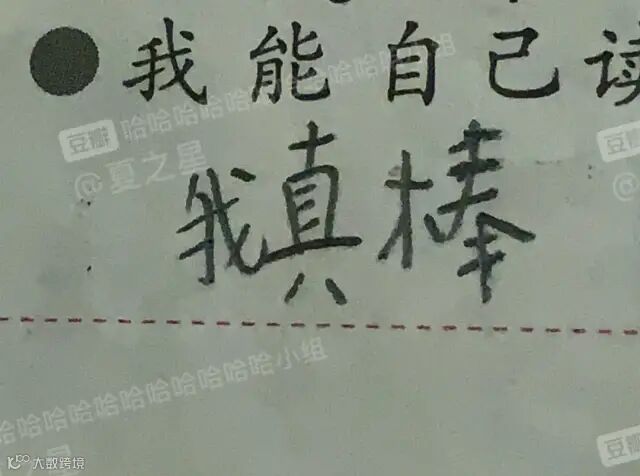 ●我能自己读
我真棒
豆瓣 哈哈哈哈哈哈哈哈哈小组
@夏之星
豆瓣
哈哈哈哈哈哈哈哈哈小组
夏之星
豆瓣
大数跨境